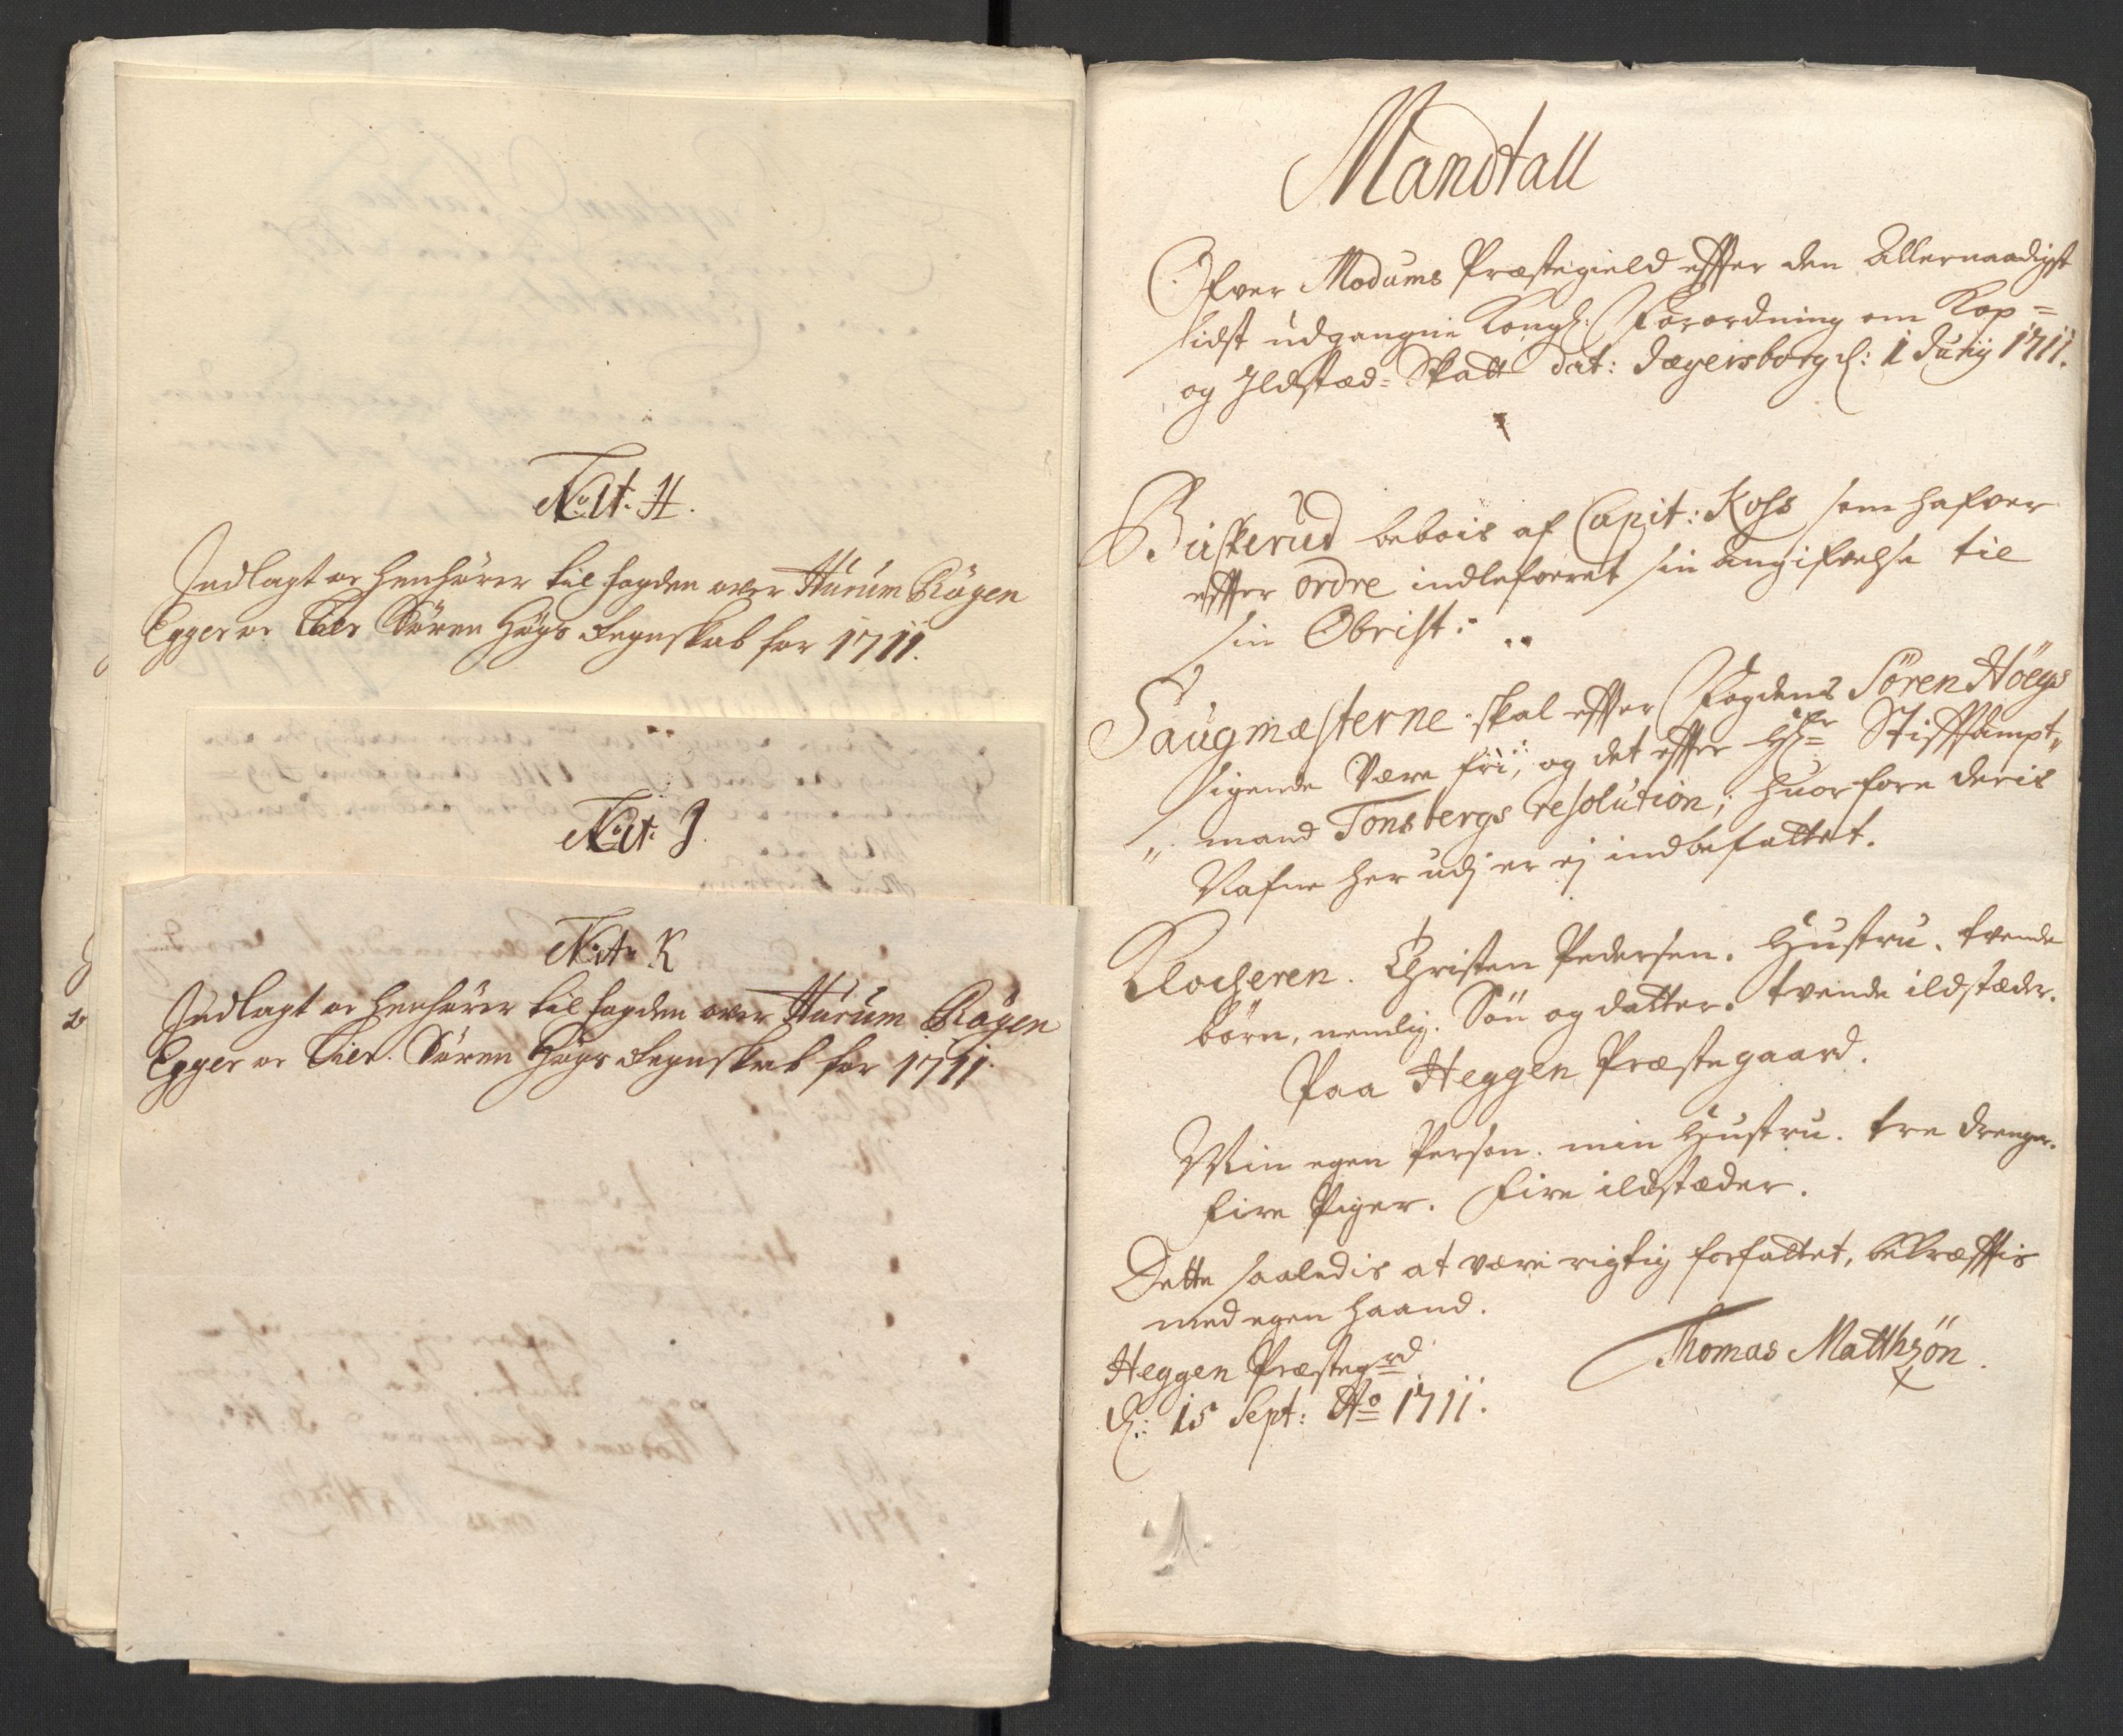 No. Lit: H.
Indlagt oc henhører til fogden over Hurum Røgen
Egger oc Lier Søren Høgs Regnskab for 1711.
No. Lit: J.
No. Lit: K
Indlagt oc henhører til fogden over Hurum Røgen
Egger oc Lier. Søren Høgs Regnskab for 1711.
Mandtall
Ofver Modums Præstegield effter den Allernaadigst
sidst udgangne Kongl: Forordning om Kop=
og Ildstæd=Skatt dat: Jægersborg d: 1 Julij 1711.
Buskerud bebois af Capit: Koss som hafver
effter ordre indlefveret sin angifvelse til
sin Obrist:
Saugmæsterne skal effter Fogdens Sören Höegs
sigende være fri, og det effter Hr Stifftampt„
„mand Tonsbergs resolution; huorfore deris
Nafne her udj er ej indbefattet.
Klocheren. Christen Pedersen. Hustru. tvende
börn, nemlig. Sön og datter. tvende ildstæder.
Paa Heggen Præstegaard.
Min egen Person. min Hustru. tre drenger.
fire Piger. Fire ildstæder.
Dette saaledis at være rigtig forfattet, bekræfftis
med egen haand.
Heggen Præstegrd
d: 15 Sept: Ao 1711.
Thomas Matthsön.